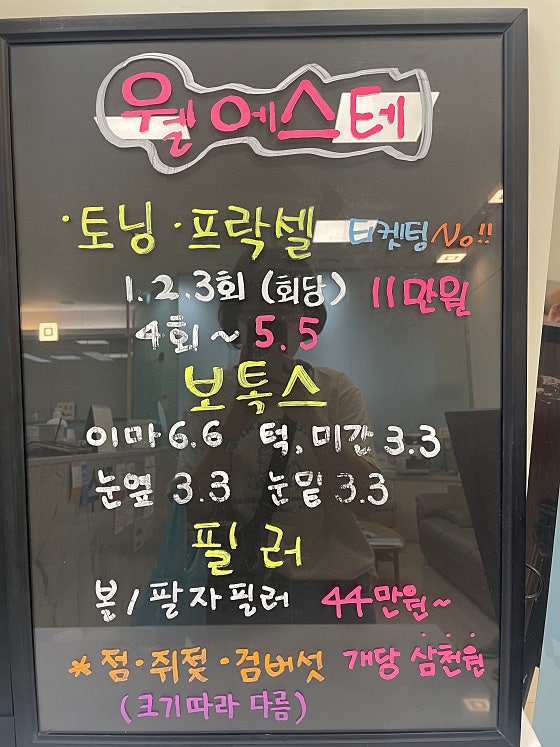 웰에스테
·토닝·프락셀 티켓팅 No!!
1.2.3회 (회당) 11만원
4회~5.5
보톡스
이마 6.6 턱, 미간 3.3
눈옆 3.3 눈밑 3.3
필러
볼/팔자필러 44만원~
*점·쥐젖·검버섯 개당 삼천원
(크기따라 다름)